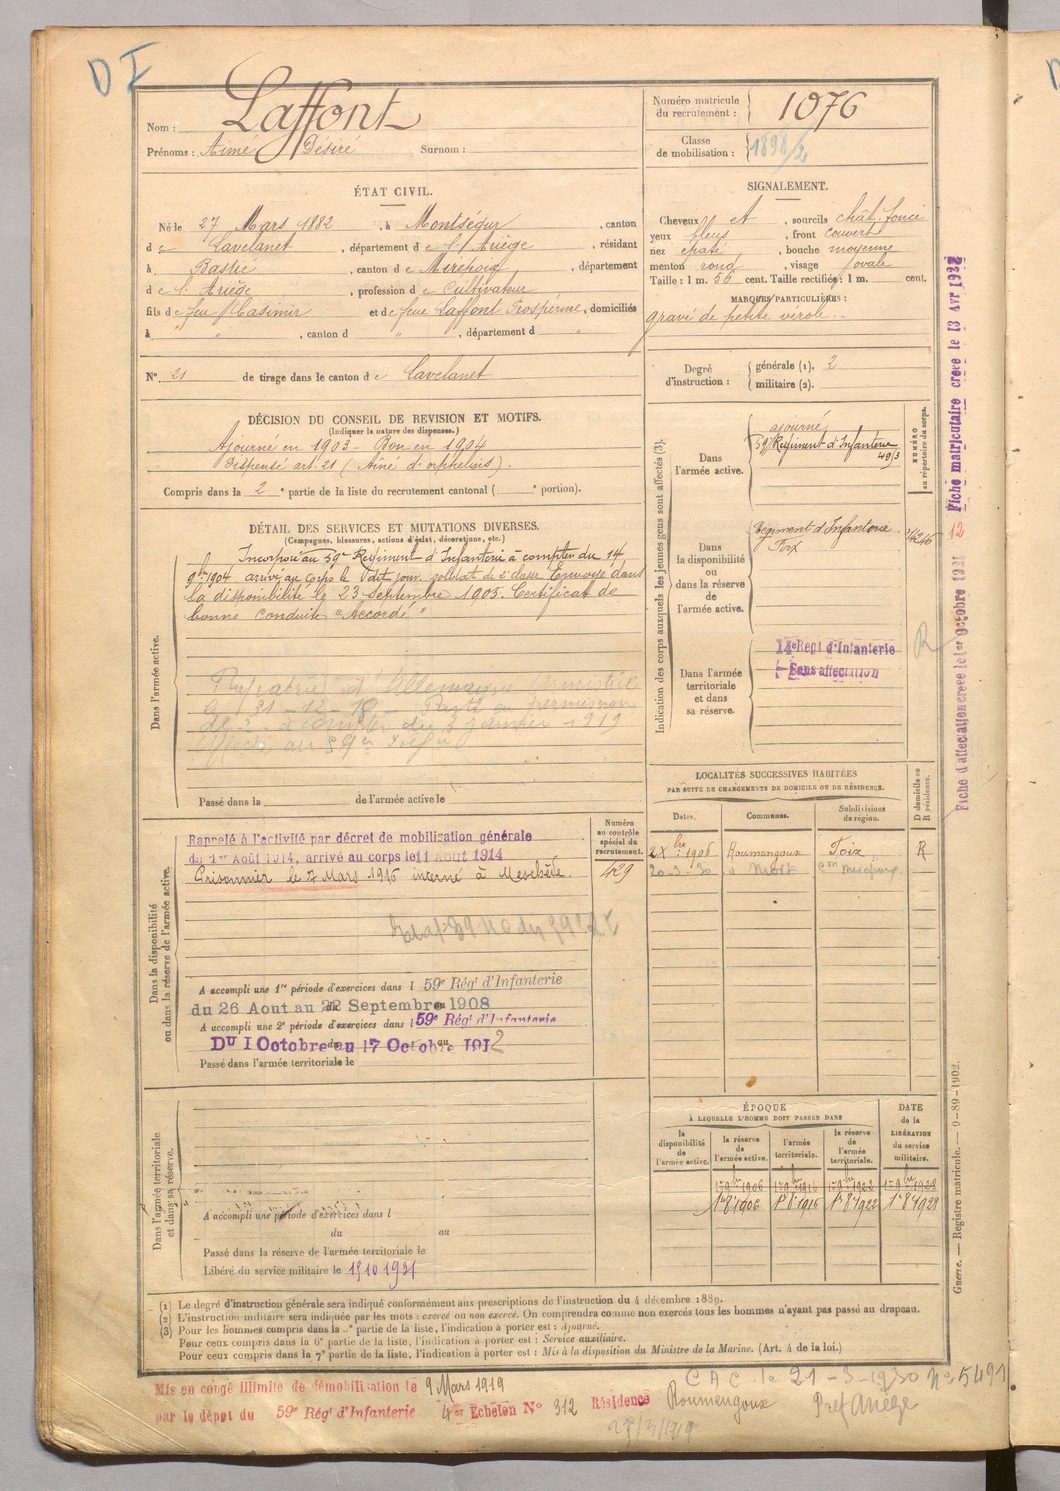 D I
Nom : Laffont
Prénoms : Aimé Désiré Surnom :
Numéro matricule du recrutement : 1076
Classe de mobilisation : 1898/2
ÉTAT CIVIL.
Né le 27 Mars 1882, à Montségur, canton
d e Lavelanet, département d e l'Ariège, résidant
à Bastié, canton d e Mirepoix, département
d e l'Ariège, profession d e Cultivateur
fils d e feu Casimir et d e feue Laffont Prospérine, domiciliés
à " , canton d " , département d "
N° 21 de tirage dans le canton d e Lavelanet
SIGNALEMENT.
Cheveux et , sourcils chât. foncé
yeux bleus , front couvert
nez épaté , bouche moyenne
menton rond , visage ovale
Taille : 1 m. 56 cent. Taille rectifiée : 1 m. cent.
MARQUES PARTICULIÈRES :
gravé de petite vérole.
Degré d'instruction : générale (1). 2
militaire (2).
DÉCISION DU CONSEIL DE REVISION ET MOTIFS.
(Indiquer la nature des dispenses.)
Ajourné en 1903 - Bon en 1904
Dispensé art. 21 (Aîné d'orphelins).
Compris dans la 2e partie de la liste du recrutement cantonal ( e portion).
DÉTAIL DES SERVICES ET MUTATIONS DIVERSES.
(Campagnes, blessures, actions d'éclat, décorations, etc.)
Dans l'armée active.
Incorporé au 59e Régiment d'Infanterie à compter du 14
9bre 1904 arrivé au Corps le dit jour, soldat de 2e classe. Envoyé dans
la disponibilité le 23 Septembre 1905. Certificat de
bonne conduite "Accordé"
Rapatrié d'Allemagne
le 31-12-18 - Parti en permission
à compter du 3 janvier 1919
Affecté au 59e
Passé dans la de l'armée active le
Indication des corps auxquels les jeunes gens sont affectés (3).
NUMÉRO au répertoire du corps.
Dans l'armée active.
ajourné
59e Régiment d'Infanterie
4913
Dans la disponibilité ou dans la réserve de l'armée active.
Régiment d'Infanterie
Foix
Dans l'armée territoriale et dans sa réserve.
14e Regt d'Infanterie
Sans affectation
R
Fiche matriculaire créée le 13 Avr 1922
12
Fiche d'affectation créée le 1er octobre 1921
Dans la disponibilité ou dans la réserve de l'armée active.
Numéro au contrôle spécial du recrutement.
429
Rappelé à l'activité par décret de mobilisation générale
du 1er Août 1914, arrivé au corps le 11 Août 1914
Prisonnier le 2 Mars 1916 interné à Meschède.
A accompli une 1re période d'exercices dans l 59e Rég' d'Infanterie
du 26 Aout au 22 Septembre 1908
A accompli une 2e période d'exercices dans l 59e Rég' d'Infanterie
DU 1 Octobre au 17 Octobre 1912
Passé dans l'armée territoriale le
LOCALITÉS SUCCESSIVES HABITÉES
PAR SUITE DE CHANGEMENTS DE DOMICILE OU DE RÉSIDENCE.
Dates. Communes. Subdivisions de région. D domicile ou R résidence.
2 Xbre 1906 Roumengoux Foix R
20-3-30 Niort
ÉPOQUE
À LAQUELLE L'HOMME DOIT PASSER DANS
DATE de la LIBÉRATION du service militaire.
la disponibilité de l'armée active. la réserve de l'armée active. l'armée territoriale. la réserve de l'armée territoriale.
1er 9bre 1906 1er 9bre 1916 1er 9bre 1922 1er 9bre 1928
1er 8 1906 1er 8 1916 1er 8 1922 1er 8 1928
Dans l'armée territoriale et dans sa réserve.
A accompli une période d'exercices dans l
du au
Passé dans la réserve de l'armée territoriale le
Libéré du service militaire le 15 10 1931
(1) Le degré d'instruction générale sera indiqué conformément aux prescriptions de l'instruction du 4 décembre 1889.
(2) L'instruction militaire sera indiquée par les mots : exercé ou non exercé. On comprendra comme non exercés tous les hommes n'ayant pas passé au drapeau.
(3) Pour les hommes compris dans la 5e partie de la liste, l'indication à porter est : Ajourné.
Pour ceux compris dans la 6e partie de la liste, l'indication à porter est : Service auxiliaire.
Pour ceux compris dans la 7e partie de la liste, l'indication à porter est : Mis à la disposition du Ministre de la Marine. (Art. 4 de la loi.)
Guerre. — Registre matricule. — 9-89-1902.
Mis en congé illimité de démobilisation le 9 Mars 1919
par le dépôt du 59e Rég' d'Infanterie 4e Echelon N° 312 Résidence Roumengoux
27/3/1919
CAC. le 21-3-1930 No 5491
Pref Ariège